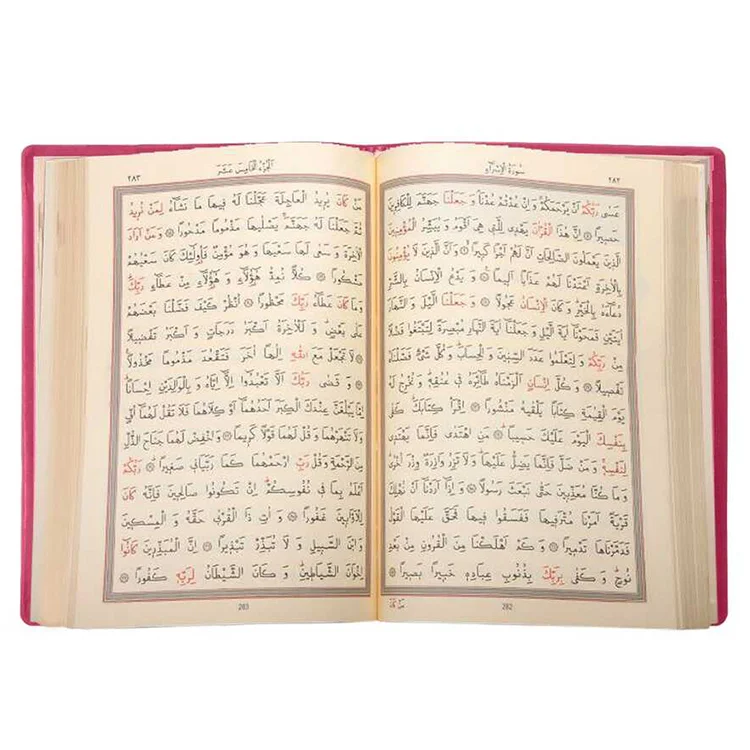 سُورَةُ الْإِسْرَاءِ
٢٨٢
عَسَى رَبُّكُمْ اَنْ يَرْحَمَكُمْ وَاِنْ عُدْتُمْ عُدْنَا وَ جَعَلْنَا جَهَنَّمَ لِلْكَافِرِينَ
حَصِيرًا اِنَّ هٰذَا الْقُرْاٰنَ يَهْدِى لِلَّتِى هِىَ اَقْوَمُ وَ يُبَشِّرُ الْمُؤْمِنِينَ
الَّذِينَ يَعْمَلُونَ الصَّالِحَاتِ اَنَّ لَهُمْ اَجْرًا كَبِيرًا وَ اَنَّ الَّذِينَ لَا يُؤْمِنُونَ
بِالْاٰخِرَةِ اَعْتَدْنَا لَهُمْ عَذَابًا اَلِيمًا وَ يَدْعُ الْاِنْسَانُ بِالشَّرِّ
دُعَاءَهُ بِالْخَيْرِ وَ كَانَ الْاِنْسَانُ عَجُولًا وَ جَعَلْنَا الَّيْلَ وَ النَّهَارَ
اٰيَتَيْنِ فَمَحَوْنَا اٰيَةَ الَّيْلِ وَ جَعَلْنَا اٰيَةَ النَّهَارِ مُبْصِرَةً لِتَبْتَغُوا فَضْلًا
مِنْ رَبِّكُمْ وَ لِتَعْلَمُوا عَدَدَ السِّنِينَ وَ الْحِسَابَ وَ كُلَّ شَىْءٍ فَصَّلْنَاهُ
تَفْصِيلًا وَ كُلَّ اِنْسَانٍ اَلْزَمْنَاهُ طَائِرَهُ فِى عُنُقِهِ وَ نُخْرِجُ لَهُ
يَوْمَ الْقِيٰمَةِ كِتَابًا يَلْقٰيهُ مَنْشُورًا اِقْرَأْ كِتَابَكَ كَفٰى
بِنَفْسِكَ الْيَوْمَ عَلَيْكَ حَسِيبًا مَنِ اهْتَدٰى فَاِنَّمَا يَهْتَدِى
لِنَفْسِهِ وَ مَنْ ضَلَّ فَاِنَّمَا يَضِلُّ عَلَيْهَا وَ لَا تَزِرُ وَازِرَةٌ وِزْرَ اُخْرٰى
وَ مَا كُنَّا مُعَذِّبِينَ حَتّٰى نَبْعَثَ رَسُولًا وَ اِذَا اَرَدْنَا اَنْ نُهْلِكَ
قَرْيَةً اَمَرْنَا مُتْرَفِيهَا فَفَسَقُوا فِيهَا فَحَقَّ عَلَيْهَا الْقَوْلُ
فَدَمَّرْنَاهَا تَدْمِيرًا وَ كَمْ اَهْلَكْنَا مِنَ الْقُرُونِ مِنْ بَعْدِ
نُوحٍ وَ كَفٰى بِرَبِّكَ بِذُنُوبِ عِبَادِهِ خَبِيرًا بَصِيرًا
282
مَنْ كَانَ
٢٨٣
اَلْجُزْءُ الْخَامِسَ عَشَرَ
مَنْ كَانَ يُرِيدُ الْعَاجِلَةَ عَجَّلْنَا لَهُ فِيهَا مَا نَشَاءُ لِمَنْ نُرِيدُ
ثُمَّ جَعَلْنَا لَهُ جَهَنَّمَ يَصْلٰيهَا مَذْمُومًا مَدْحُورًا وَ مَنْ اَرَادَ
الْاٰخِرَةَ وَ سَعٰى لَهَا سَعْيَهَا وَ هُوَ مُؤْمِنٌ فَاُولٰئِكَ كَانَ سَعْيُهُمْ
مَشْكُورًا كُلًّا نُمِدُّ هٰؤُلَاءِ وَ هٰؤُلَاءِ مِنْ عَطَاءِ رَبِّكَ
وَ مَا كَانَ عَطَاءُ رَبِّكَ مَحْظُورًا اُنْظُرْ كَيْفَ فَضَّلْنَا بَعْضَهُمْ
عَلٰى بَعْضٍ وَ لَلْاٰخِرَةُ اَكْبَرُ دَرَجَاتٍ وَ اَكْبَرُ تَفْضِيلًا
لَا تَجْعَلْ مَعَ اللّٰهِ اِلٰهًا اٰخَرَ فَتَقْعُدَ مَذْمُومًا مَخْذُولًا
وَ قَضٰى رَبُّكَ اَلَّا تَعْبُدُوا اِلَّا اِيَّاهُ وَ بِالْوَالِدَيْنِ اِحْسَانًا
اِمَّا يَبْلُغَنَّ عِنْدَكَ الْكِبَرَ اَحَدُهُمَا اَوْ كِلَاهُمَا فَلَا تَقُلْ لَهُمَا اُفٍّ
وَ لَا تَنْهَرْهُمَا وَ قُلْ لَهُمَا قَوْلًا كَرِيمًا وَ اخْفِضْ لَهُمَا جَنَاحَ الذُّلِّ
مِنَ الرَّحْمَةِ وَ قُلْ رَبِّ ارْحَمْهُمَا كَمَا رَبَّيَانِى صَغِيرًا رَبُّكُمْ
اَعْلَمُ بِمَا فِى نُفُوسِكُمْ اِنْ تَكُونُوا صَالِحِينَ فَاِنَّهُ كَانَ
لِلْاَوَّابِينَ غَفُورًا وَ اٰتِ ذَا الْقُرْبٰى حَقَّهُ وَ الْمِسْكِينَ
وَ ابْنَ السَّبِيلِ وَ لَا تُبَذِّرْ تَبْذِيرًا اِنَّ الْمُبَذِّرِينَ كَانُوا
اِخْوَانَ الشَّيَاطِينِ وَ كَانَ الشَّيْطَانُ لِرَبِّهِ كَفُورًا
283